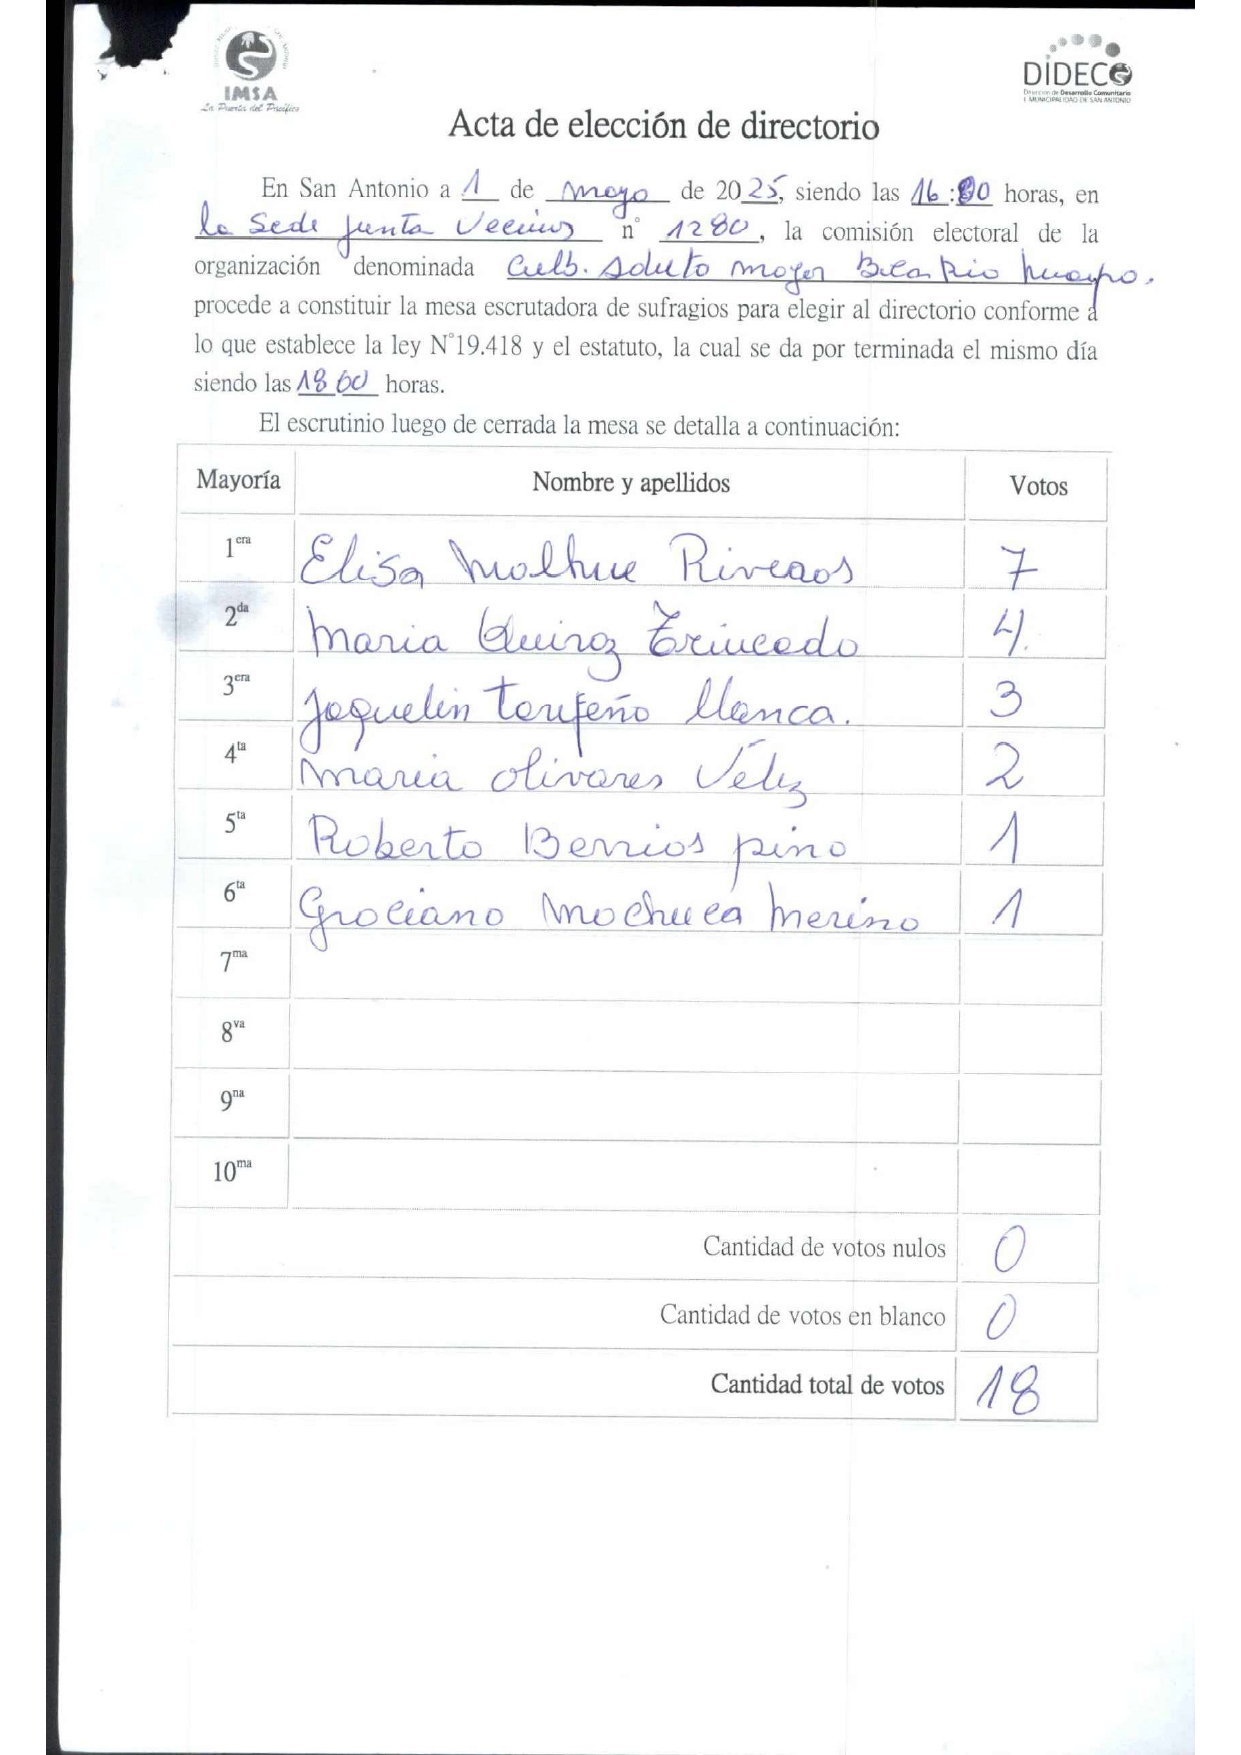 IMSA
La Puerta del Pacífico
DIDECO
Dirección de Desarrollo Comunitario
I. MUNICIPALIDAD DE SAN ANTONIO
Acta de elección de directorio
En San Antonio a 1 de mayo de 2025, siendo las 16:00 horas, en
la Sede Junta Vecinos n° 1280, la comisión electoral de la
organización denominada Culb. Adulto mayor Rio
procede a constituir la mesa escrutadora de sufragios para elegir al directorio conforme a
lo que establece la ley N°19.418 y el estatuto, la cual se da por terminada el mismo día
siendo las 18 00 horas.
El escrutinio luego de cerrada la mesa se detalla a continuación:
Mayoría Nombre y apellidos Votos
1era Elisa 7
2da Maria Quiroz Trincado 4.
3era Jaquelin Llanca. 3
4ta Maria Olivares Véliz 2
5ta Roberto Berrios pino 1
6ta Graciano Machuca Merino 1
7ma
8va
9na
10ma
Cantidad de votos nulos 0
Cantidad de votos en blanco 0
Cantidad total de votos 18